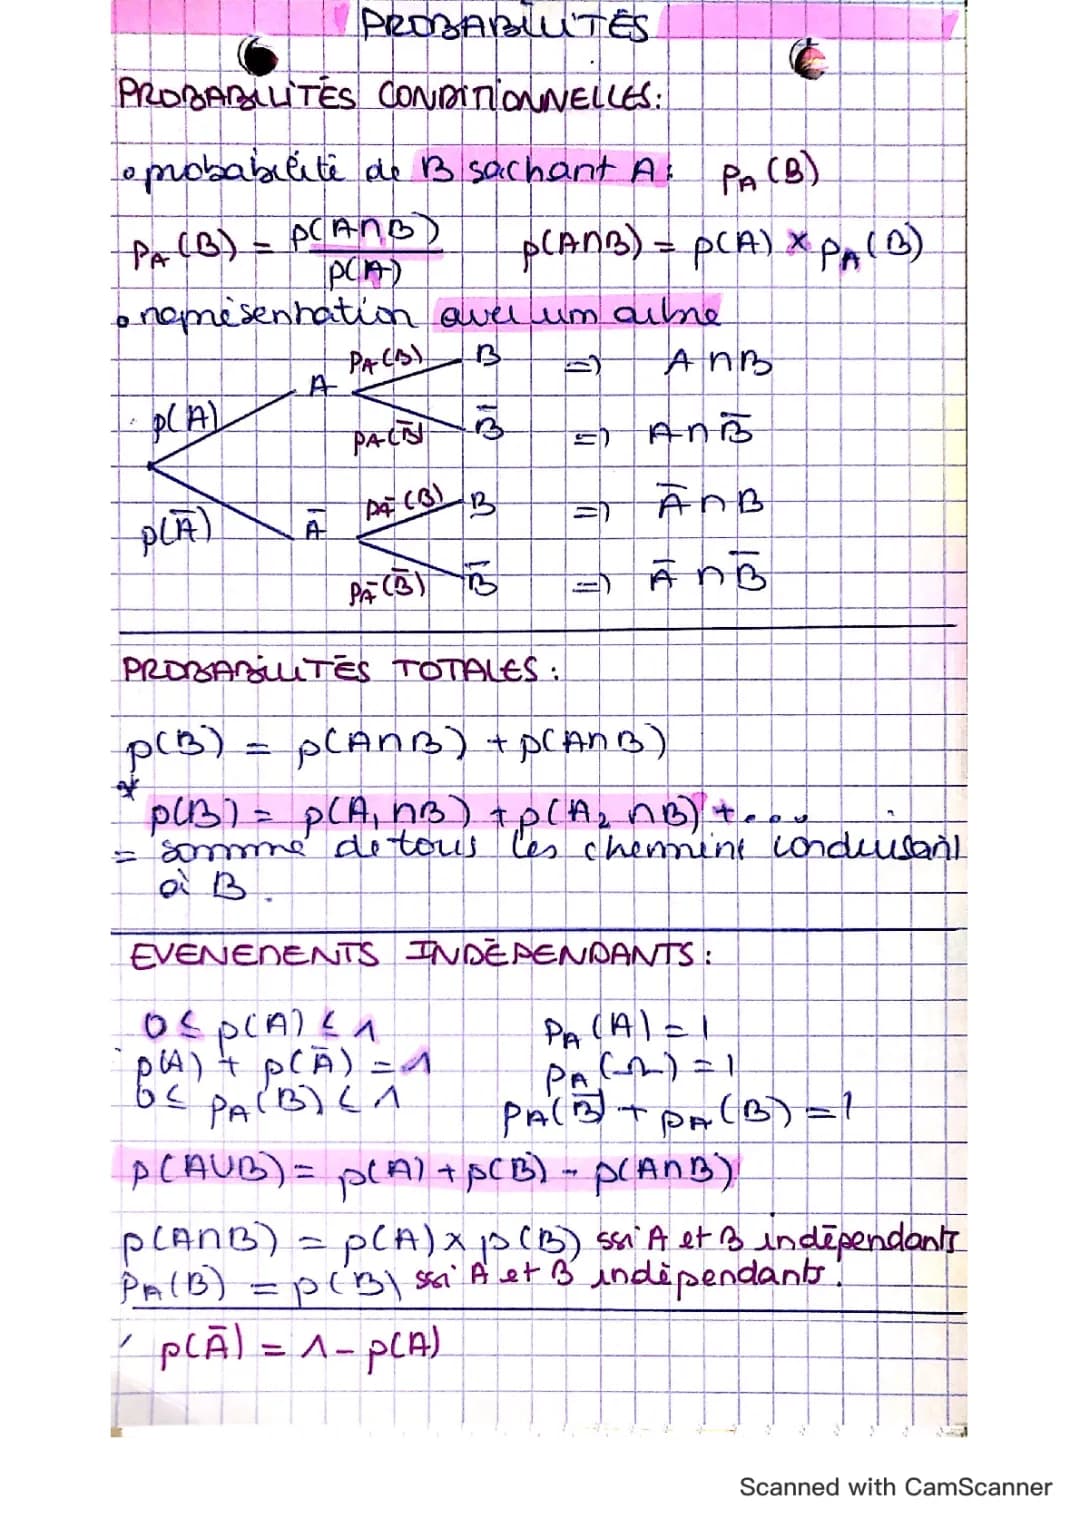 PROBABILITÉS
PROBABILITÉS CONDITIONNELLES:
• probabilité de B sachant A: p_A(B)
p_A(B) = p(A∩B) / p(A)    p(A∩B) = p(A) × p_A(B)
• représentation avec um arbre
p_A(B) B => A∩B
A
p(A)
p_A(B̄) B̄ => A∩B̄
p_Ā(B) B => Ā∩B
p(Ā) Ā
p_Ā(B̄) B̄ => Ā∩B̄
PROBABILITÉS TOTALES:
p(B) = p(A∩B) + p(A∩B)
* p(B) = p(A₁∩B) + p(A₂∩B) + ...
= somme de tous les chemins conduisant
à B.
EVENEMENTS INDÉPENDANTS:
0 ≤ p(A) ≤ 1    p_A(A) = 1
p(A) + p(Ā) = 1    p_A(Ω) = 1
0 ≤ p_A(B) ≤ 1    p_A(B̄) + p_A(B) = 1
p(A∪B) = p(A) + p(B) - p(A∩B)
p(A∩B) = p(A) × p(B) ssi A et B indépendants
p_A(B) = p(B) ssi A et B indépendants.
p(Ā) = 1 - p(A)
Scanned with CamScanner